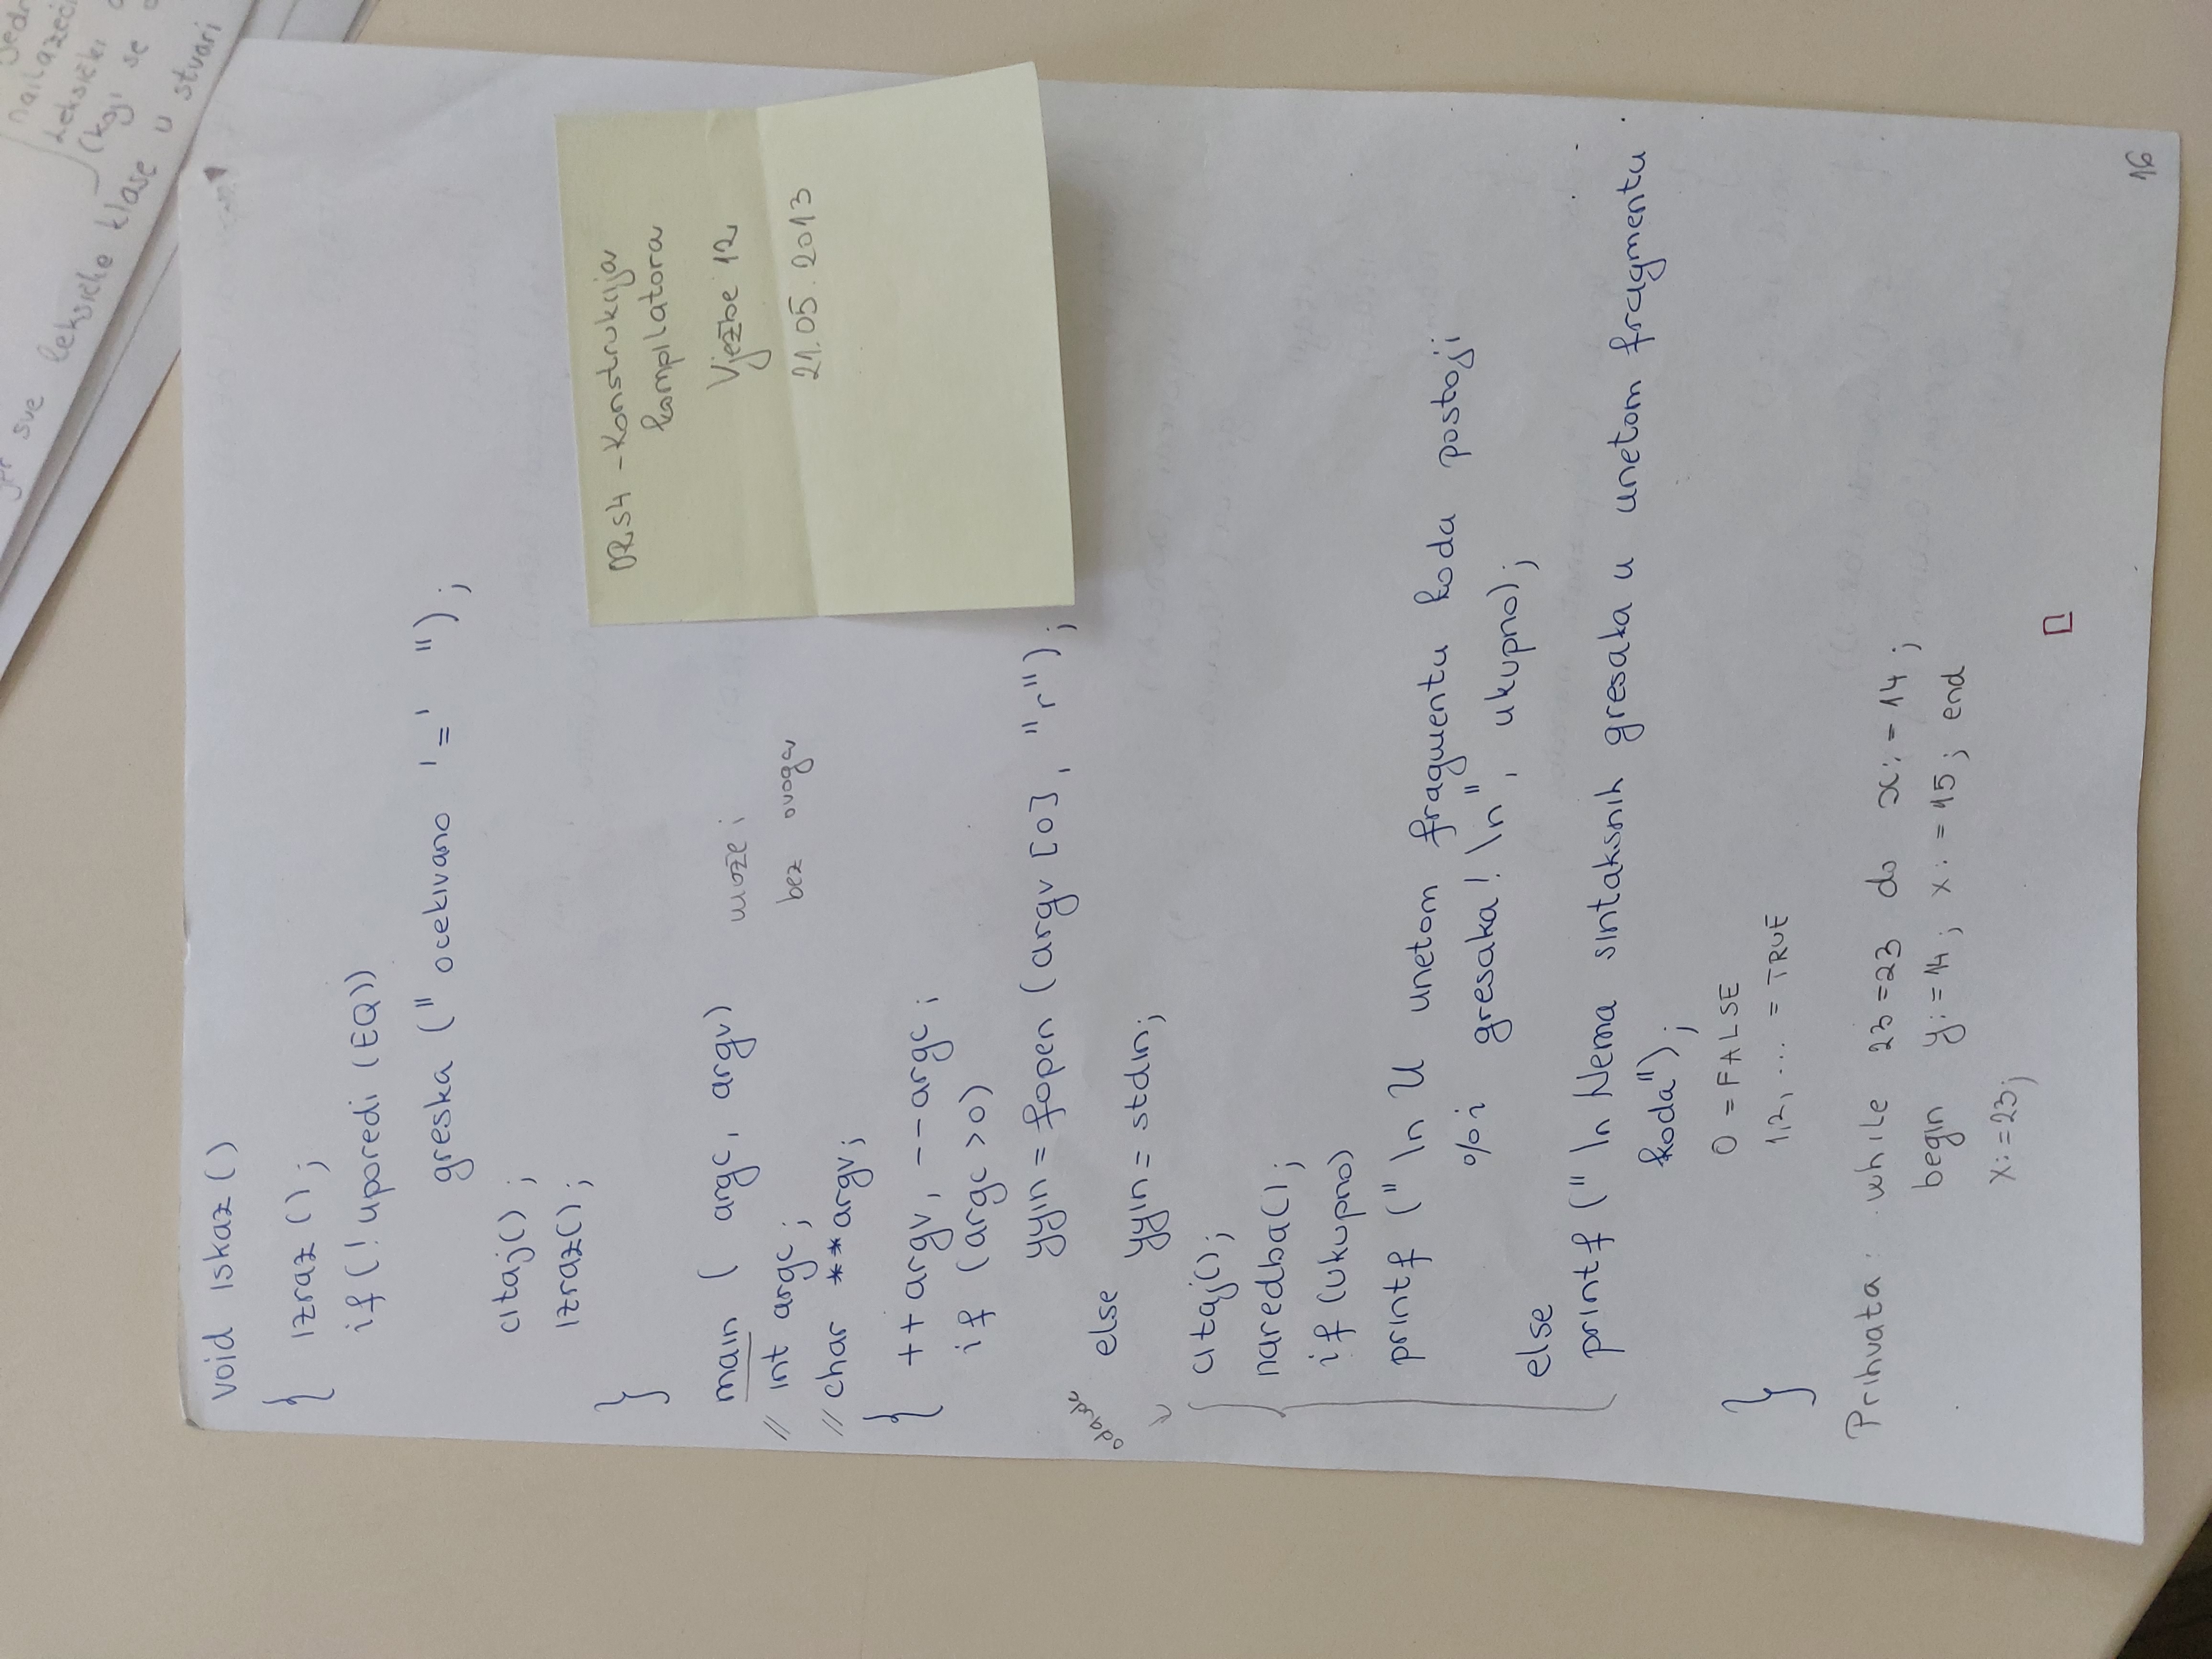 sve leksičke klase u stvari
nailazeći
Leksički
(koji se
void iskaz()
{ izraz();
if(!uporedi(EQ))
greska ("ocekivano '=' ");
citaj();
izraz();
}
main ( argc, argv) može i
// int argc; bez ovoga
// char **argv;
{ ++argv, --argc;
if (argc >0)
yyin = fopen (argv [0], "r");
else
yyin = stdin;
odavde
citaj();
naredba();
if (ukupno)
printf ("\n U unetom fragmentu koda postoji
%i gresaka! \n", ukupno);
else
printf ("\n Nema sintaksnih gresaka u unetom fragmentu
koda");
0 = FALSE
} 1,2, ... = TRUE
Prihvata: while 23=23 do x:=14;
begin y:=14; x:=15; end
x:=23;
16
ORS4 - Konstrukcija
kompilatora
Vježbe 12
21.05.2013